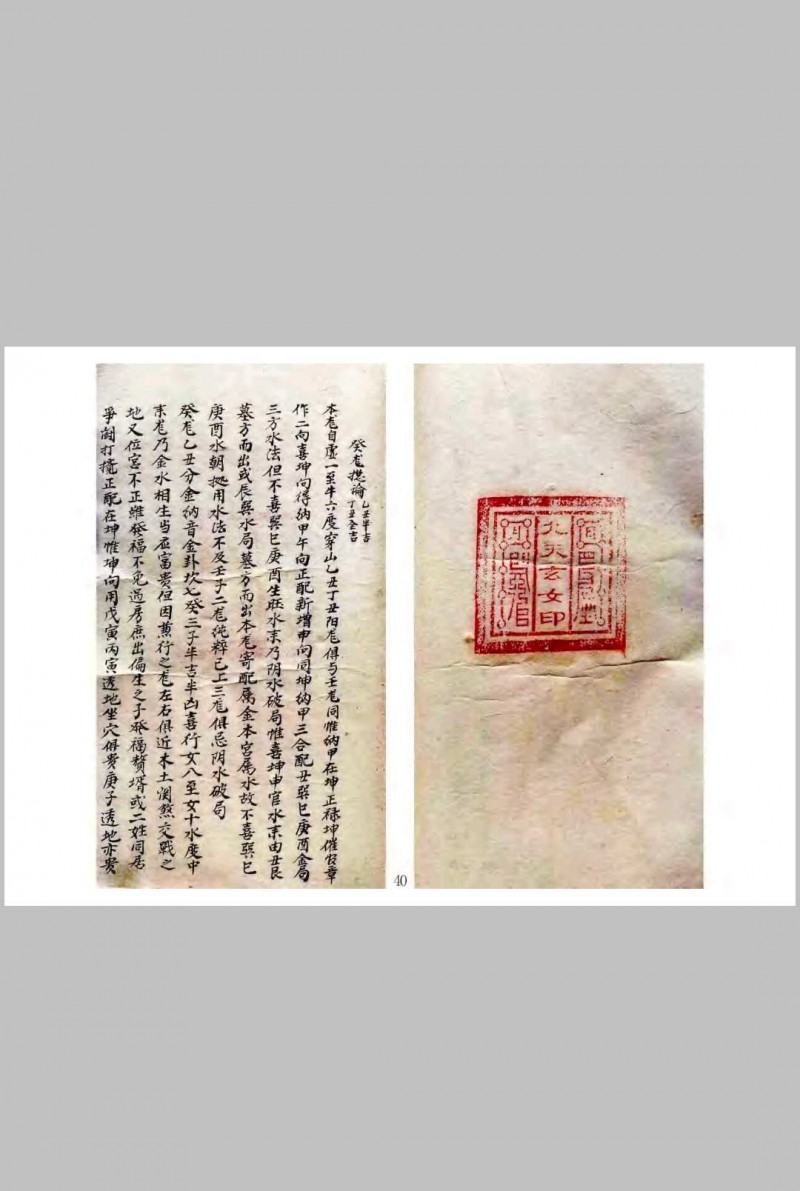 癸龙总论 乙丑半吉 丁丑全吉
本龙自虚一至牛六度穿山乙丑丁丑阳龙俱与壬龙同惟纳甲在坤正禄坤催官章
作二向喜坤向得纳甲午向正配新增申向同坤纳甲三合配丑巽巳庚酉金局
三方水法但不喜巽巳庚酉生旺水来乃阴水破局惟喜坤申官水来由丑艮
墓方而出或辰巽水局墓方而出本龙寄配属金本宫属水故不喜巽巳
庚酉水朝捴用水法不及壬子二龙纯粹已上三龙俱忌阴水破局
癸龙乙丑分金纳音金卦坎七癸三子半吉半凶喜行女八至女十水度中
来龙乃金水相生当应富贵但因兼行之龙左右俱近本土润煞交战之
地又位宫不正雖發福不免过房庶出偏生之子承福贅壻或二姓同居
爭闘打搅正配在坤惟坤向用戊寅丙寅透地坐穴俱贵庚子透地亦贵
九天玄女印
40